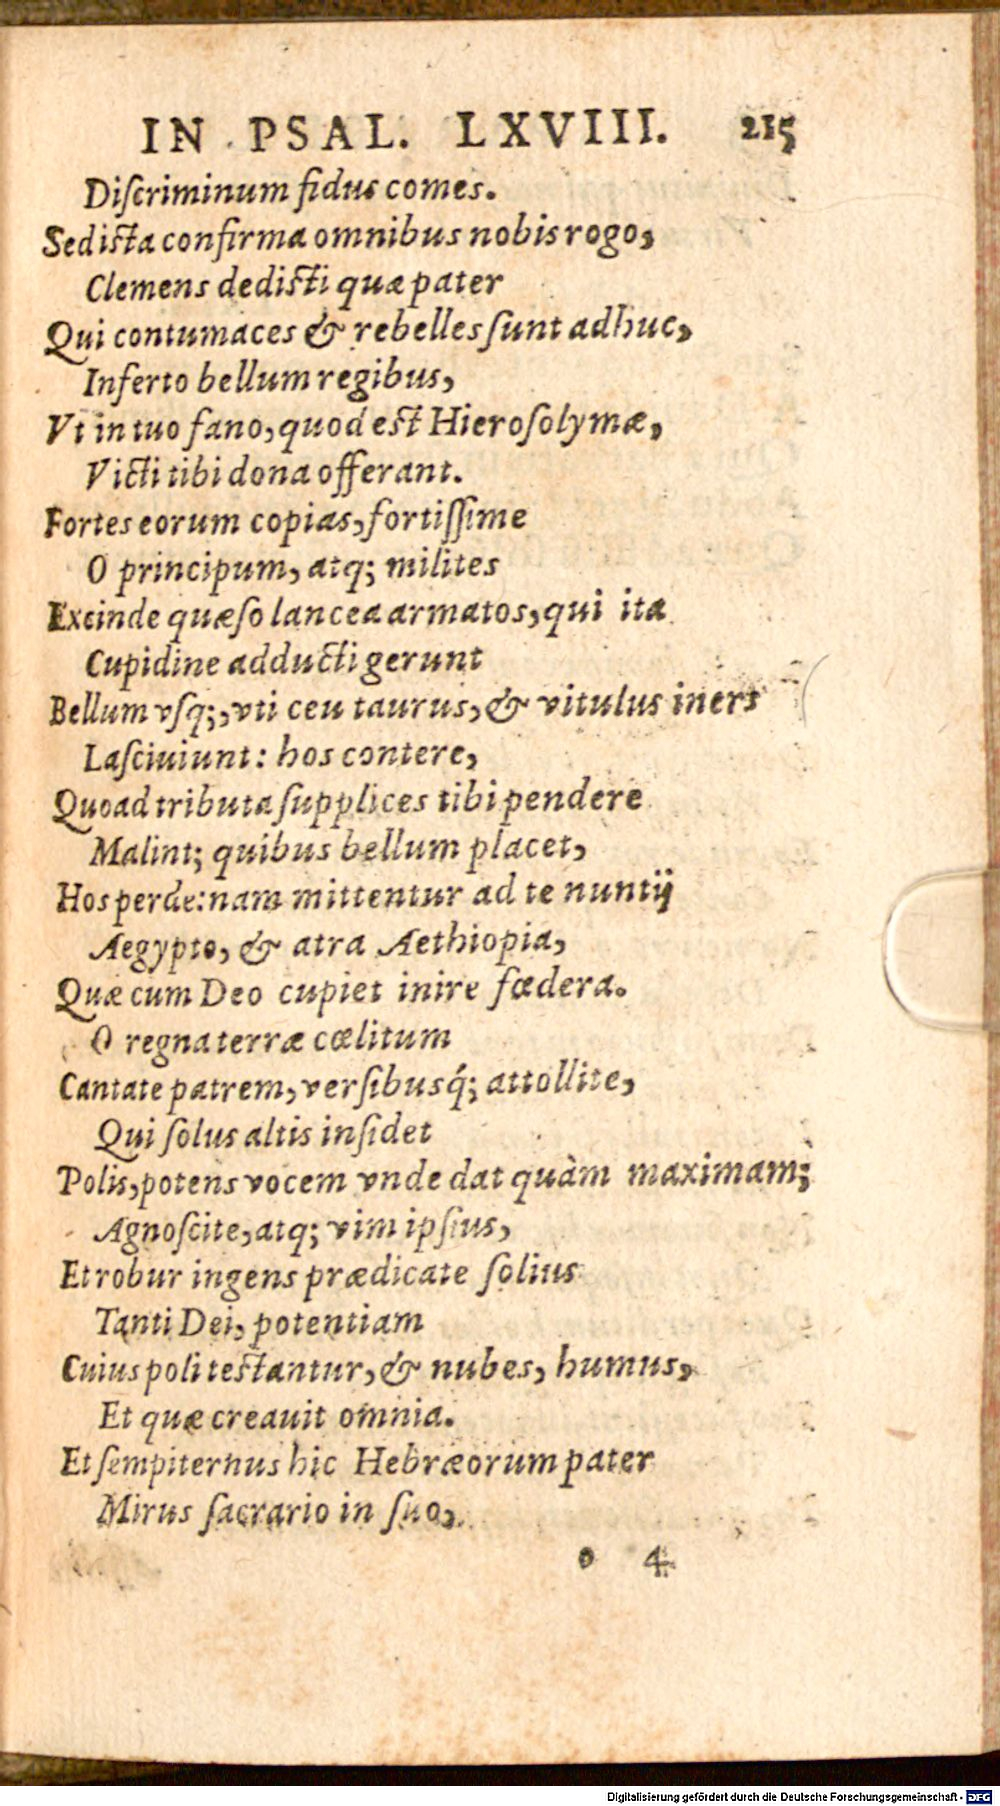 IN PSAL. LXVIII. 215
Diſcriminum fidus comes.
Sed iſta confirma omnibus nobis rogo,
Clemens dediſti quæ pater
Qui contumaces & rebelles ſunt adhuc,
Inferto bellum regibus,
Vt in tuo fano, quod eſt Hieroſolymæ,
Victi tibi dona offerant.
Fortes eorum copias, fortiſſime
O principum, atq; milites
Excinde quæſo lancea armatos, qui ita
Cupidine adducti gerunt
Bellum vſq;, vti ceu taurus, & vitulus iners
Laſciuiunt: hos contere,
Quoad tributa ſupplices tibi pendere
Malint; quibus bellum placet,
Hos perde: nam mittentur ad te nuntij
Aegypto, & atra Aethiopia,
Quæ cum Deo cupiet inire fœdera.
O regna terræ cœlitum
Cantate patrem, verſibusq́; attollite,
Qui ſolus altis inſidet
Polis, potens vocem vnde dat quàm maximam;
Agnoſcite, atq; vim ipſius,
Et robur ingens prædicate ſolius
Tanti Dei, potentiam
Cuius poli teſtantur, & nubes, humus,
Et quæ creauit omnia.
Et ſempiternus hic Hebræorum pater
Mirus ſacrario in ſuo,
o 4
Digitalisierung gefördert durch die Deutsche Forschungsgemeinschaft - DFG